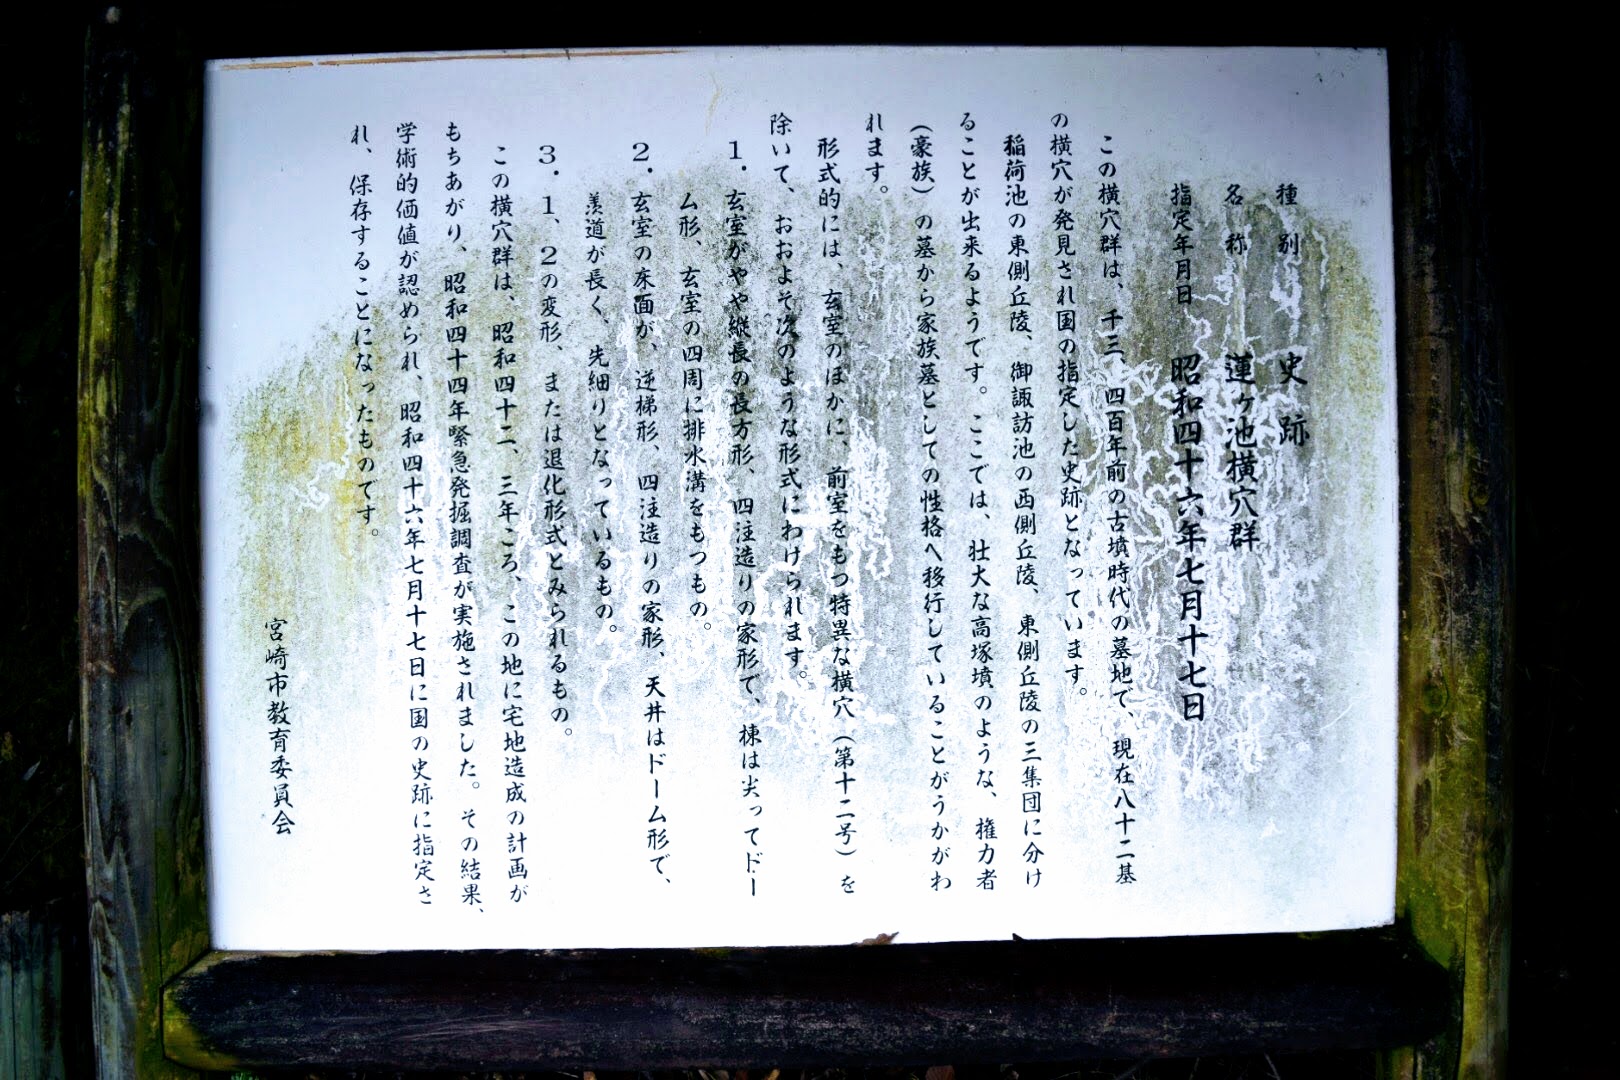 種別　史跡
名称　蓮ヶ池横穴群
指定年月日　昭和四十六年七月十七日
この横穴群は、千三、四百年前の古墳時代の墓地で、現在八十二基
の横穴が発見され国の指定した史跡となっています。
稲荷池の東側丘陵、御諏訪池の西側丘陵、東側丘陵の三集団に分け
ることが出来るようです。ここでは、壮大な高塚墳のような、権力者
（豪族）の墓から家族墓としての性格へ移行していることがうかがわ
れます。
形式的には、玄室のほかに、前室をもつ特異な横穴（第十二号）を
除いて、おおよそ次のような形式にわけられます。
1．玄室がやや縦長の長方形、四注造りの家形で、棟は尖ってドー
ム形、玄室の四周に排水溝をもつもの。
2．玄室の床面が、逆梯形、四注造りの家形、天井はドーム形で、
羨道が長く、先細りとなっているもの。
3．1、2の変形、または退化形式とみられるもの。
この横穴群は、昭和四十二、三年ころ、この地に宅地造成の計画が
もちあがり、昭和四十四年緊急発掘調査が実施されました。その結果、
学術的価値が認められ、昭和四十六年七月十七日に国の史跡に指定さ
れ、保存することになったものです。
宮崎市教育委員会